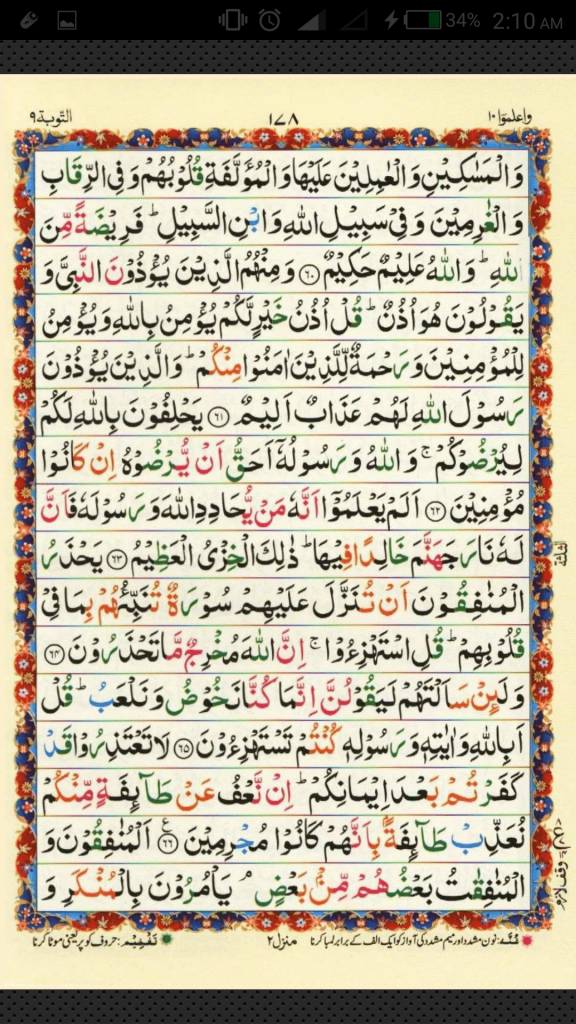 34% 2:10 AM
واعلموا ١٠ ١٧٨ التوبة ٩
وَالْمَسٰكِيْنِ وَالْعٰمِلِيْنَ عَلَيْهَا وَالْمُؤَلَّفَةِ قُلُوْبُهُمْ وَفِى الرِّقَابِ
وَالْغٰرِمِيْنَ وَفِىْ سَبِيْلِ اللّٰهِ وَابْنِ السَّبِيْلِ ؕ فَرِيْضَةً مِّنَ
اللّٰهِ ؕ وَاللّٰهُ عَلِيْمٌ حَكِيْمٌ ﴿٦٠﴾ وَمِنْهُمُ الَّذِيْنَ يُؤْذُوْنَ النَّبِىَّ وَ
يَقُوْلُوْنَ هُوَ اُذُنٌ ؕ قُلْ اُذُنُ خَيْرٍ لَّكُمْ يُؤْمِنُ بِاللّٰهِ وَيُؤْمِنُ
لِلْمُؤْمِنِيْنَ وَرَحْمَةٌ لِّلَّذِيْنَ اٰمَنُوْا مِنْكُمْ ؕ وَالَّذِيْنَ يُؤْذُوْنَ
رَسُوْلَ اللّٰهِ لَهُمْ عَذَابٌ اَلِيْمٌ ﴿٦١﴾ يَحْلِفُوْنَ بِاللّٰهِ لَكُمْ
لِيُرْضُوْكُمْ ۚ وَاللّٰهُ وَرَسُوْلُهٗۤ اَحَقُّ اَنْ يُّرْضُوْهُ اِنْ كَانُوْا
مُؤْمِنِيْنَ ﴿٦٢﴾ اَلَمْ يَعْلَمُوْۤا اَنَّهٗ مَنْ يُّحَادِدِ اللّٰهَ وَرَسُوْلَهٗ فَاَنَّ
لَهٗ نَارَ جَهَنَّمَ خَالِدًا فِيْهَا ؕ ذٰلِكَ الْخِزْىُ الْعَظِيْمُ ﴿٦٣﴾ يَحْذَرُ
الْمُنٰفِقُوْنَ اَنْ تُنَزَّلَ عَلَيْهِمْ سُوْرَةٌ تُنَبِّئُهُمْ بِمَا فِىْ
قُلُوْبِهِمْ ؕ قُلِ اسْتَهْزِءُوْا ۚ اِنَّ اللّٰهَ مُخْرِجٌ مَّا تَحْذَرُوْنَ ﴿٦٤﴾
وَلَئِنْ سَاَلْتَهُمْ لَيَقُوْلُنَّ اِنَّمَا كُنَّا نَخُوْضُ وَنَلْعَبُ ؕ قُلْ
اَبِاللّٰهِ وَاٰيٰتِهٖ وَرَسُوْلِهٖ كُنْتُمْ تَسْتَهْزِءُوْنَ ﴿٦٥﴾ لَا تَعْتَذِرُوْا قَدْ
كَفَرْتُمْ بَعْدَ اِيْمَانِكُمْ ؕ اِنْ نَّعْفُ عَنْ طَآئِفَةٍ مِّنْكُمْ
نُعَذِّبْ طَآئِفَةًۢ بِاَنَّهُمْ كَانُوْا مُجْرِمِيْنَ ﴿٦٦﴾ اَلْمُنٰفِقُوْنَ وَ
الْمُنٰفِقٰتُ بَعْضُهُمْ مِّنْۢ بَعْضٍ ۘ يَاْمُرُوْنَ بِالْمُنْكَرِ وَ
الثلثة
وقف لازم
غُنَّہ: نون مشدد اور میم مشدد کی آواز کو ایک الف کے برابر لمبا کرنا منزل ٢ تَفْخِیْم: حروف کو پر یعنی موٹا کرنا